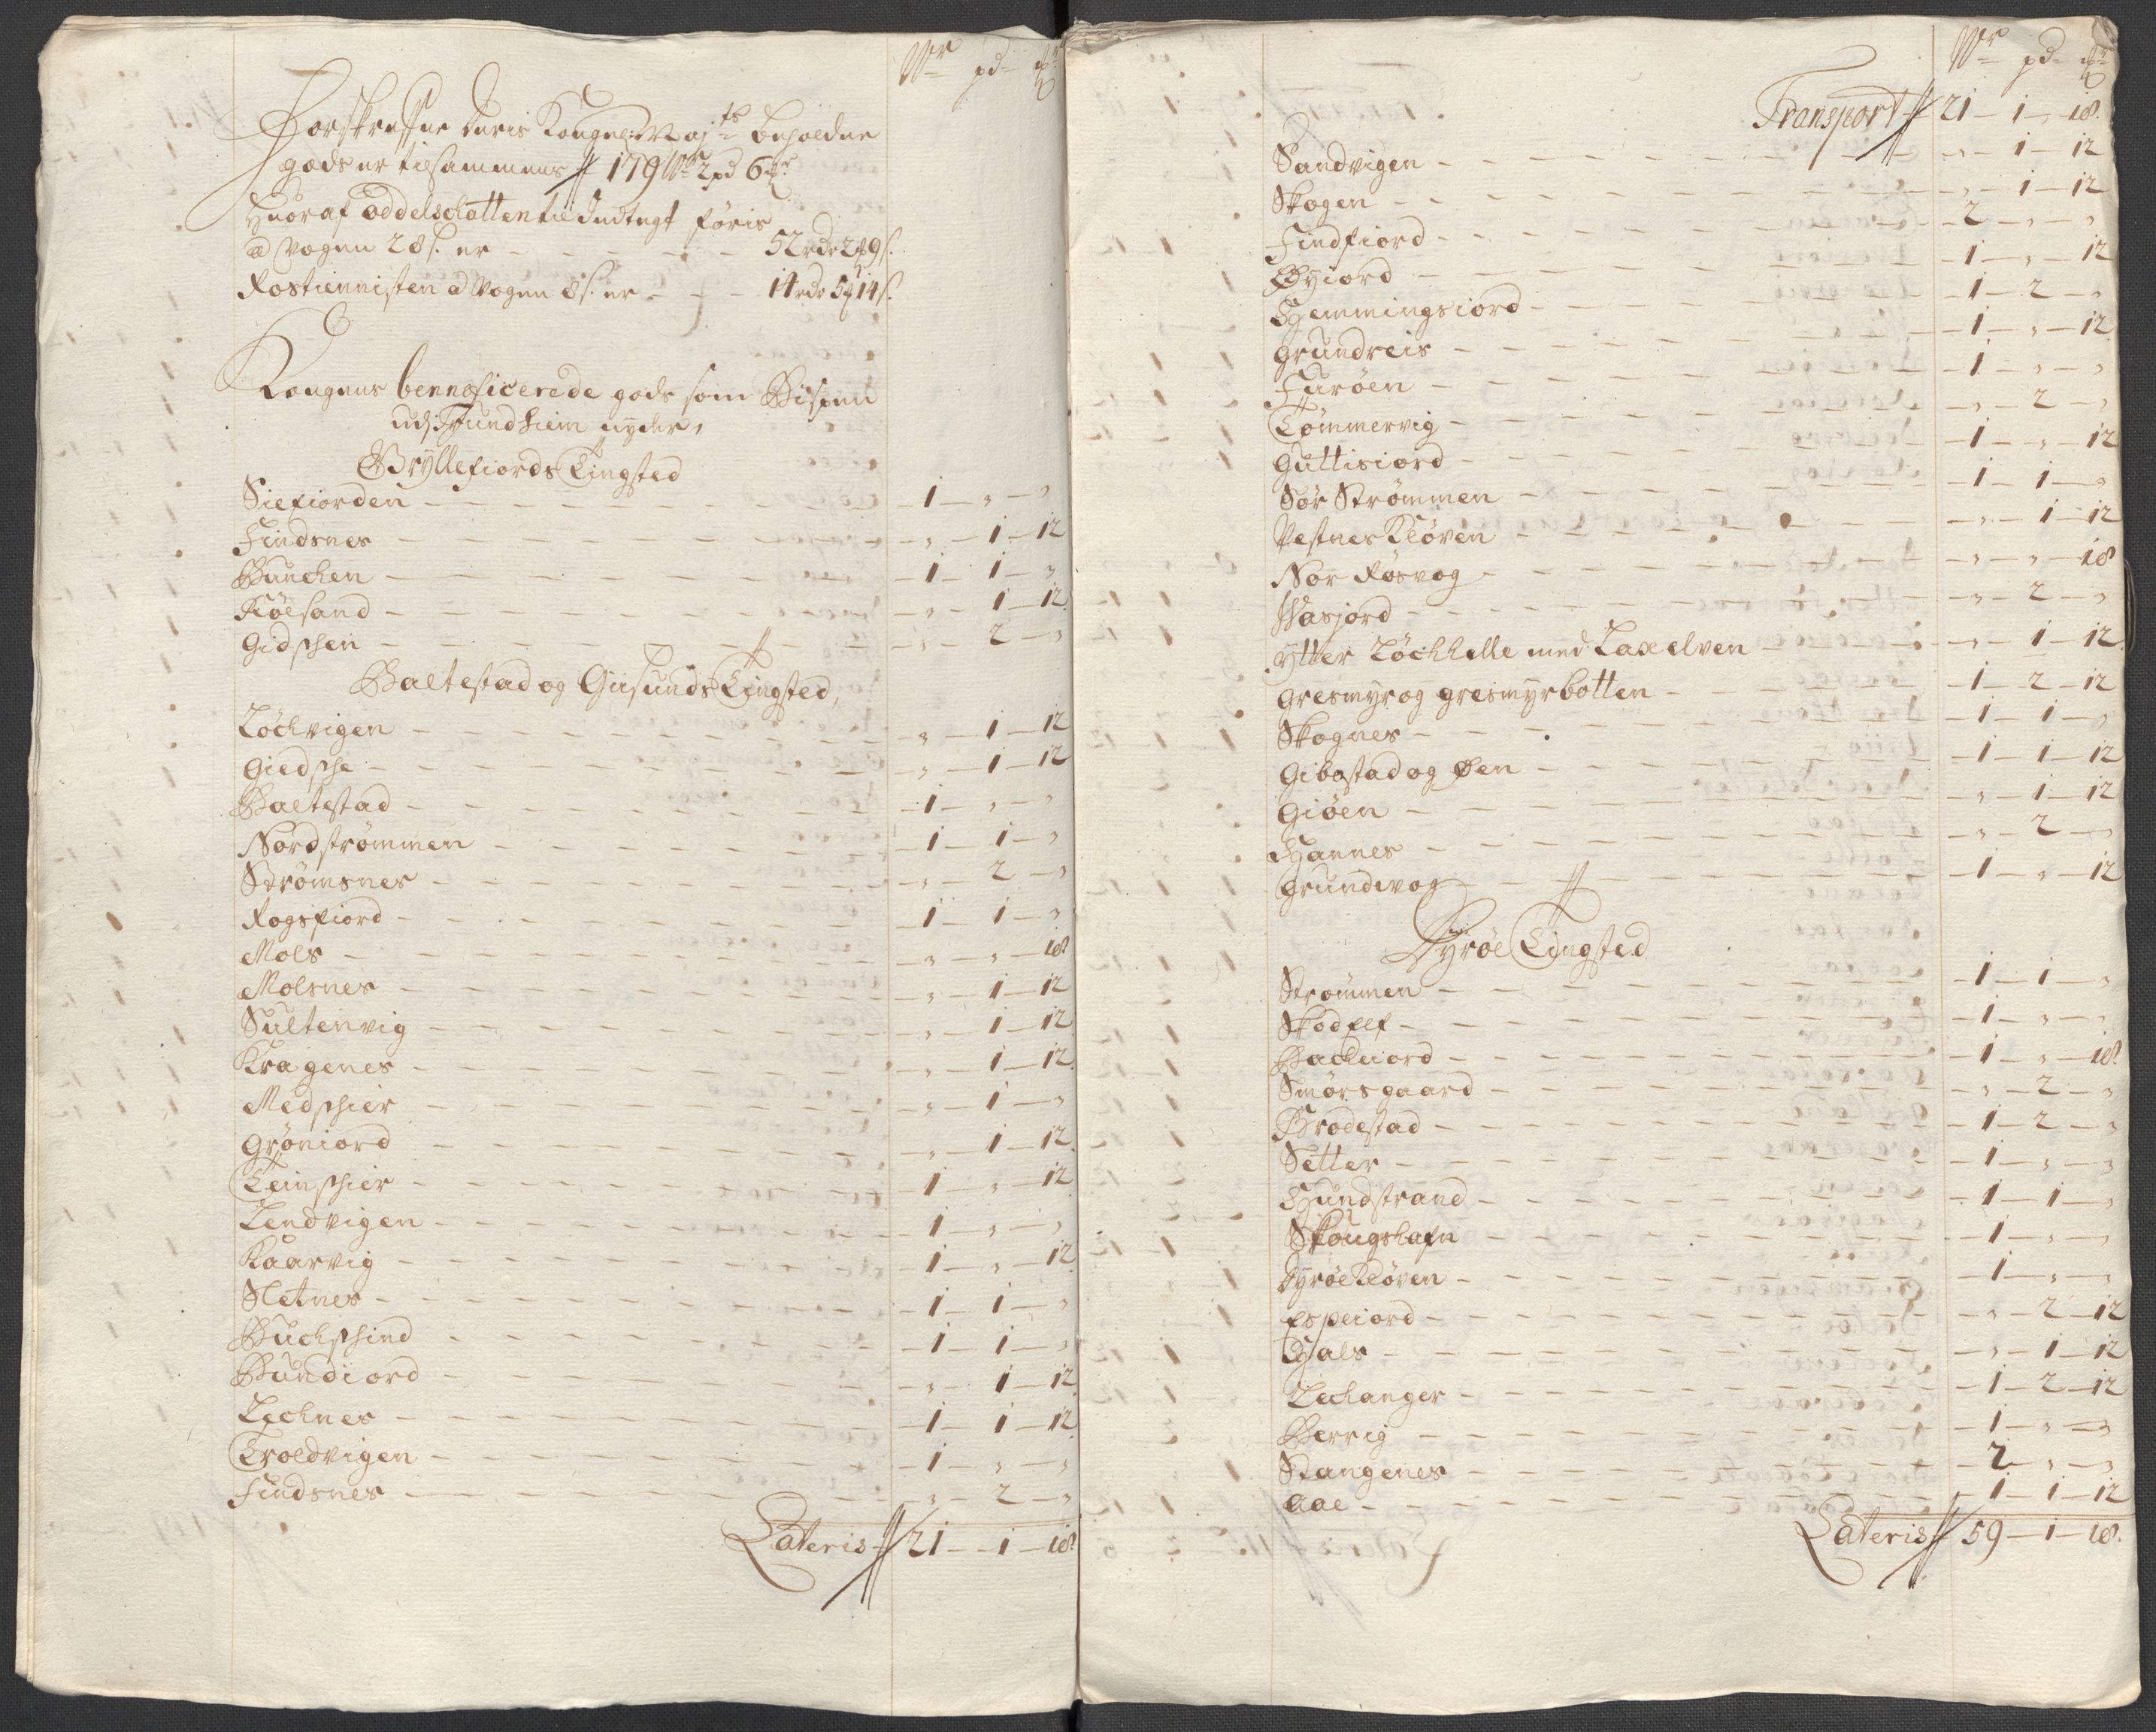 Wr pd mr
Forskrefne deris Kongel: Majts beholdne
gods er tilsammens # 179 Wr 2 pd 6 mr
Huoraf oddelschatten til Indtegt føris
a Vogen 28 s. er - - - 52 rdr 2 # 9 s.
Rostiennisten a Vogen 8 s. er - - - 14 rdr 5 # 14 s.
Kongens bennæficerede gods som Bispen
udj Trundhiem nyder,
Gryllefiords Tingsted
Siefiorden - 1 - " - "
Findsnes - " - 1 - 12
Bunchen - 1 - 1 - "
Kiølsand - " - 1 - 12
Gidschen - " - 2 - "
Baltestad og Gisunds Tingsted,
Løchvigen - " - 1 - 12
Giedsche - " - 1 - 12
Baltestad - 1 - " - "
Nordstrømmen - 1 - 1 - "
Strømsnes - " - 2 - "
Rogsfiord - 1 - 1 - "
Mols - " - " - 18
Molsnes - " - 1 - 12
Sultenvig - " - 1 - 12
Kragenes - " - 1 - 12
Medschier - " - 1 - "
Grøniord - " - 1 - 12
Teinschier - 1 - " - 12
Lendvigen - 1 - " - "
Kaarvig - 1 - " - 12
Sletnes - 1 - 1 - "
Buchschind - 1 - 1 - "
Bundiord - " - 1 - 12
Lechnes - 1 - 1 - 12
Troldvigen - 1 - " - "
Findsnes - " - 2 - "
Lateris # 21 - 1 - 18
Wr pd mr
Transport # 21 - 1 - 18.
Sandvigen - " - 1 - 12
Skogen - " - 1 - 12
Findfiord - 2 - " - "
Øyiord - 1 - " - 12
Hemmingsiord - 1 - 2 - "
Grundreis - 1 - " - 12
Furøen - 1 - " - "
Tømmervig - " - 2 - "
Guttisiord - 1 - " - 12
Sør Strømmen - 1 - 1 - "
Vestnes Kløven - " - 1 - 12
Nor Rosvog - " - " - 18
Wasjord - " - 2 - "
Ytter Løchhelle med Laxelven - " - 1 - 12
Gresmyr og gresmyrbotten - 1 - 2 - 12
Skognes - 1 - 1 - "
Gibostad og Øen - 1 - 1 - 12
Giøen - " - 1 - 12
Hannes - " - 2 - "
Grundevog - 1 - " - 12
Dyrøe Tingsted
Strømmen - 1 - 1 - "
Skodelf - 1 - " - "
Bacheiord - 1 - " - 18
Smørsgaard - " - 2 - "
Brodestad - 1 - 2 - "
Setter - 1 - " - "
Hundstrand - 1 - 1 - "
Skougshafn - 1 - " - "
Dyrøe Kløven - 1 - " - "
Espeiord - " - 2 - 12
Hals - " - 1 - 12
Lechanger - 1 - 2 - 12
Berrig - 1 - " - "
Stangenes - 2 - " - "
Aae - 1 - 1 - 12
Lateris # 59 - 1 - 18.